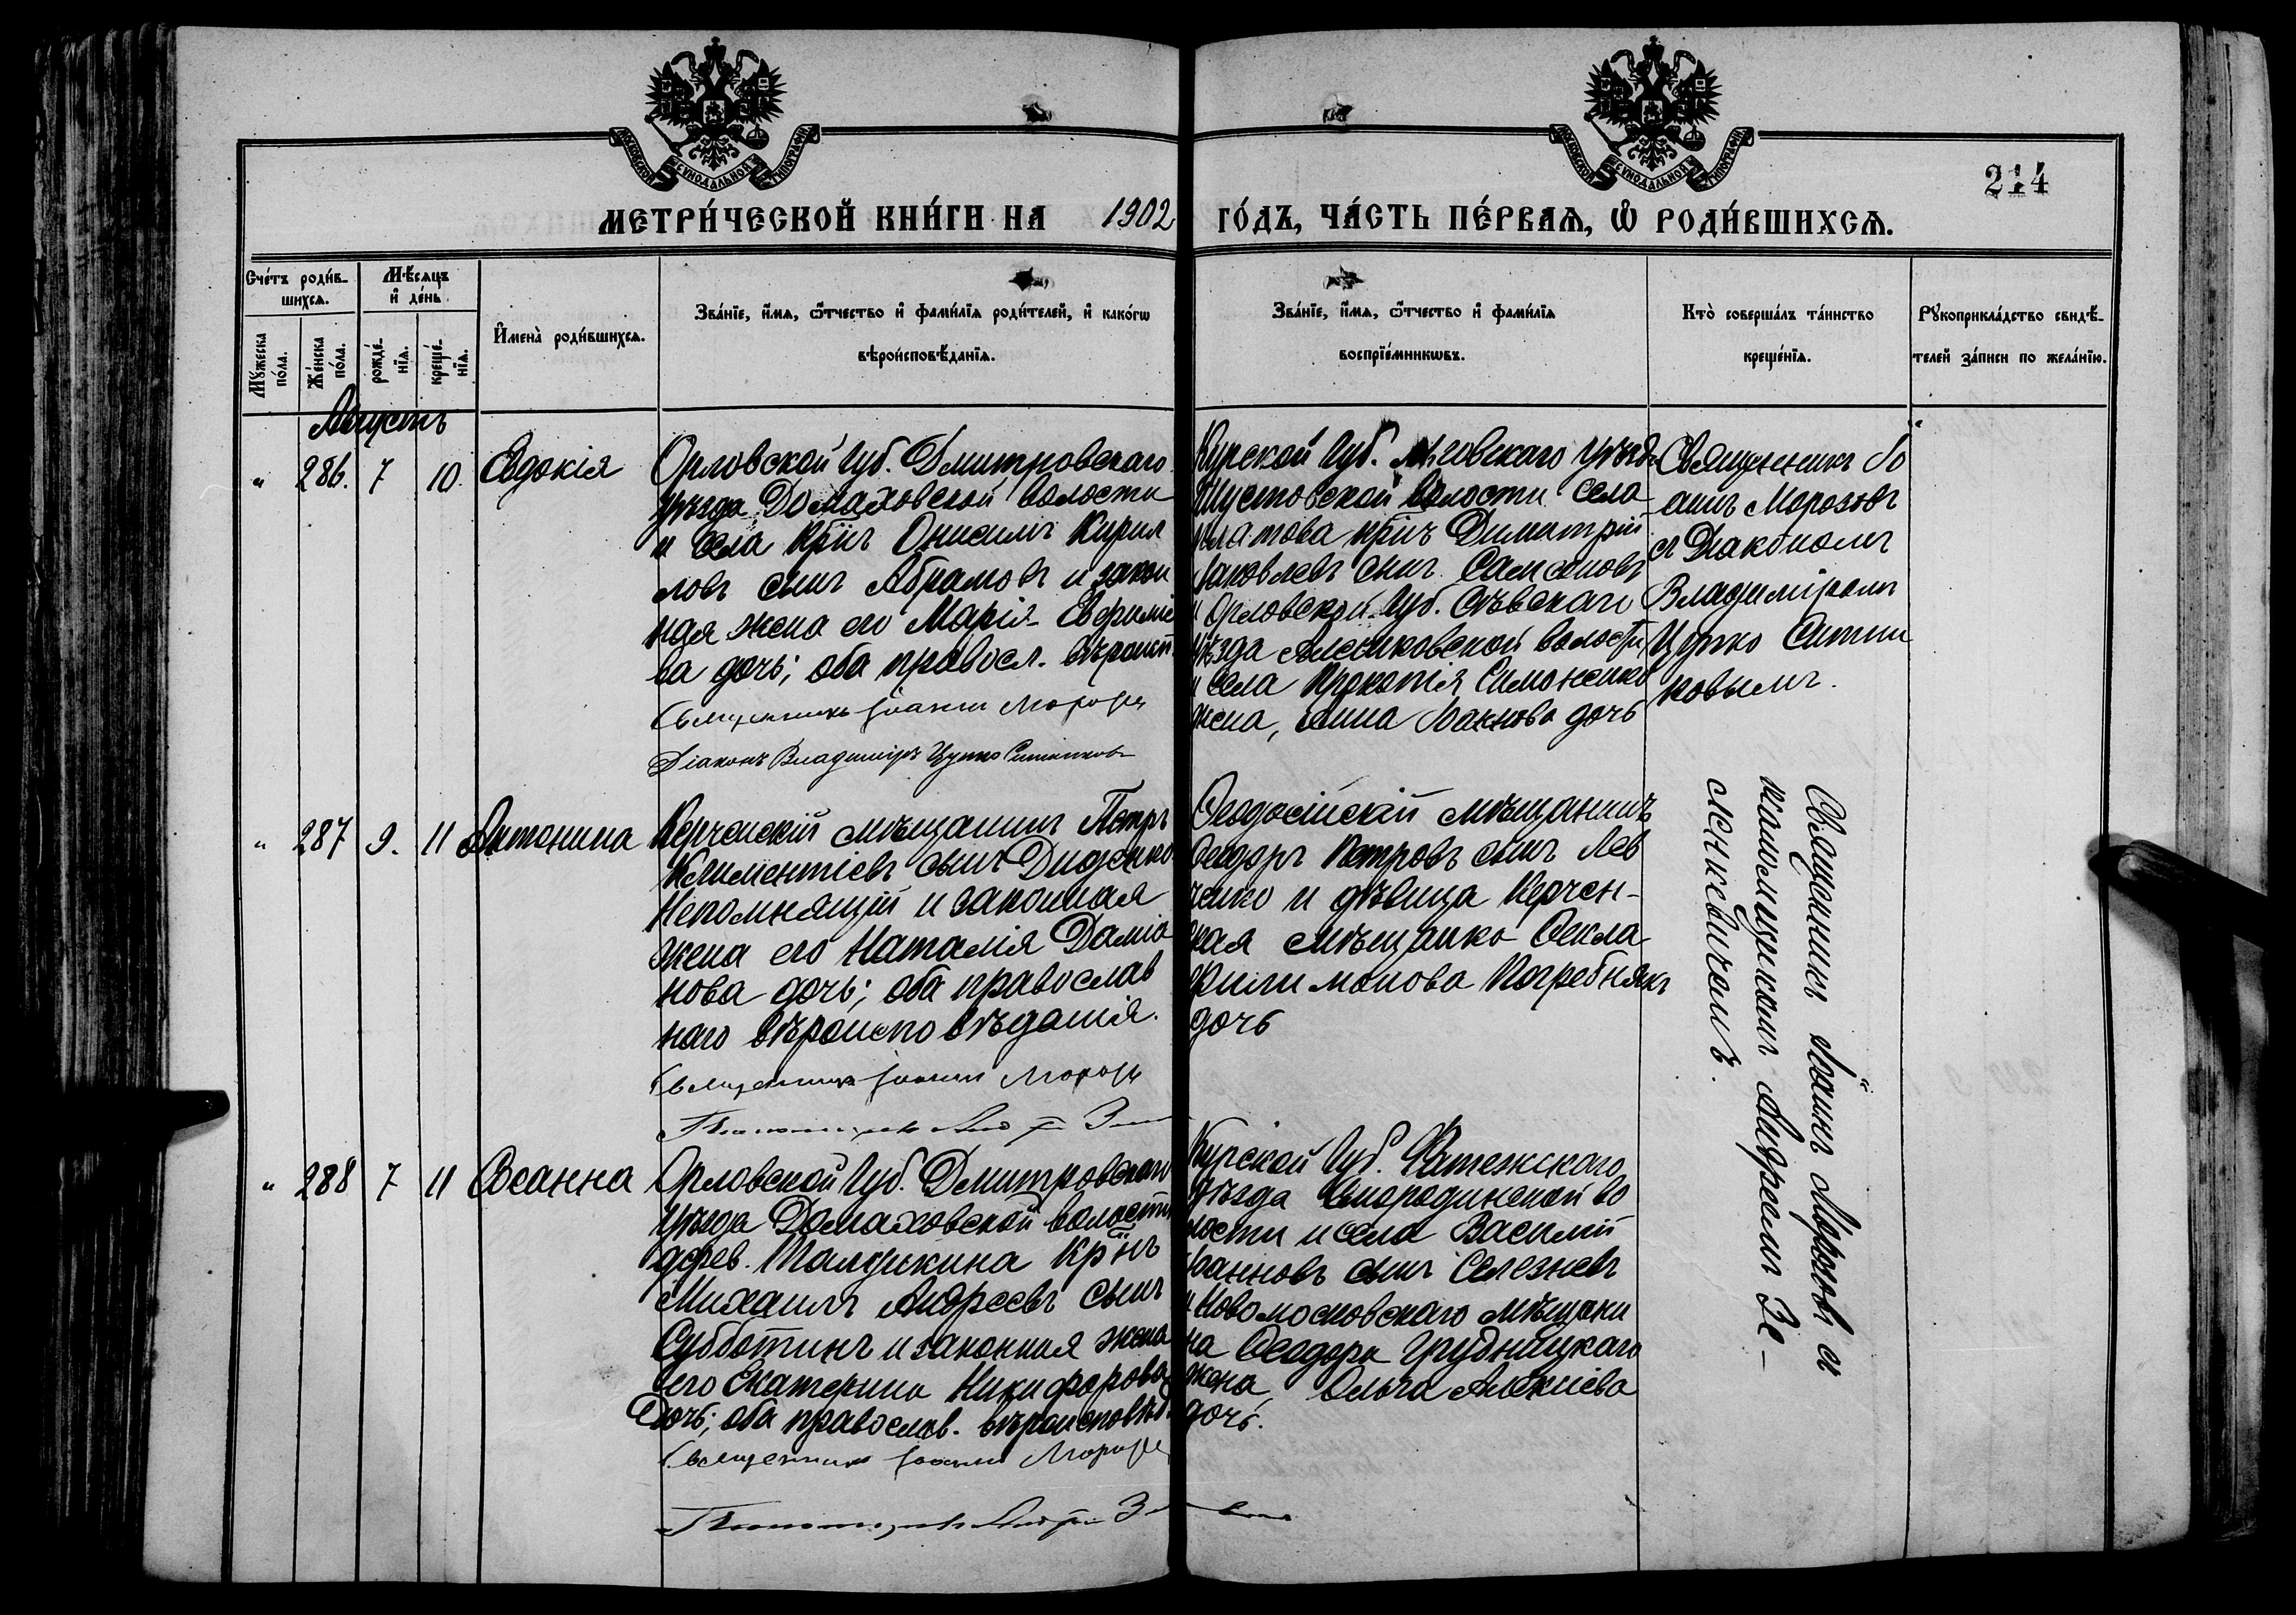 МОСКОВСКОЙ СѴНОДАЛЬНОЙ ТИПОГРАФІИ
МОСКОВСКОЙ СѴНОДАЛЬНОЙ ТИПОГРАФІИ
214
МЕТРИ́ЧЕСКОЙ КНИ́ГИ НА 1902 ГО́ДЪ, ЧА́СТЬ ПЕ́РВАѦ, Ѡ҆ РОДИ́ВШИХСѦ.
Сче́тъ роди́в-
шихсѧ.
Мѣ́сяцъ
и҆ де́нь
Мꙋжеска по́ла.
Же́нска по́ла.
рожде́-
нїѧ.
креще́-
нїѧ.
И҆мена̀ роди́вшихсѧ.
Зва́нїе, и҆́мѧ, ѻ҆́тчество и҆ фами́лїѧ роди́телей, и҆ како́гѡ
вѣроисповѣ́данїѧ.
Зва́нїе, и҆́мѧ, ѻ҆́тчество и҆ фами́лїѧ
воспрїе́мникѡвъ.
Кто̀ соверша́лъ та́инство
креще́нїѧ.
Рꙋкоприкла́дство свидѣ́-
телей за́писи по жела́нїю.
Августъ
" 286. 7 10. Евдокія
Орловской Губ. Дмитровскаго
уѣзда Домаховской волости
и села Крӥнъ Онисимъ Кирил
ловъ сынъ Абрамовъ и закон
ная жена его Марія Евфиміе
ва дочь; оба правосл. вѣроисп
Священникъ Іоаннъ Морозовъ
Діаконъ Владиміръ Цупко Ситников
Курской Губ. Льговскаго уѣзда
волости села
крӥнъ Димитрій
Іаковлевъ сынъ
и Орловской Губ. Сѣвскаго
уѣзда волости
и села Прокопія Симоненко
жена, Анна Іоаннова дочь
Священникъ Іо
аннъ Морозовъ
съ Діакономъ
Владиміромъ
Цупко Ситни
ковымъ.
" 287 9. 11 Антонина
Керченскій мѣщанинъ Петръ
Климентіевъ сынъ Диденко
Непомнящій и законная
жена его Наталія Даміа
нова дочь; оба православ
наго вѣроисповѣданія.
Священникъ Іоаннъ Морозовъ
Ѳеодосійскій мѣщанинъ
Ѳеодоръ Петровъ сынъ Лев
ченко и дѣвица Керчен-
ская мѣщанка Ѳекла
Филимонова Погребнякъ
дочь
Священникъ Іоаннъ Морозовъ съ
псаломщикомъ Андреемъ Зе-
менкевичомъ.
" 288 7 11 Ѳеанна
Орловской Губ. Дмитровскаго
уѣзда Домаховской волости
дерев. Талдыкина Крӥнъ
Михаилъ Андреевъ сынъ
Субботинъ и законная жена
его Екатерина Никифорова
Дочь; оба православ. вѣроисповѣд.
Священникъ Іоаннъ Морозовъ
Курской Губ. Фатежскаго
уѣзда Смородинской во
лости и села Василій
Іоанновъ сынъ Селезневъ
и Новомосковскаго мѣщани
на Ѳеодора Грудницкаго
жена, Ольга Алексіева
дочь.